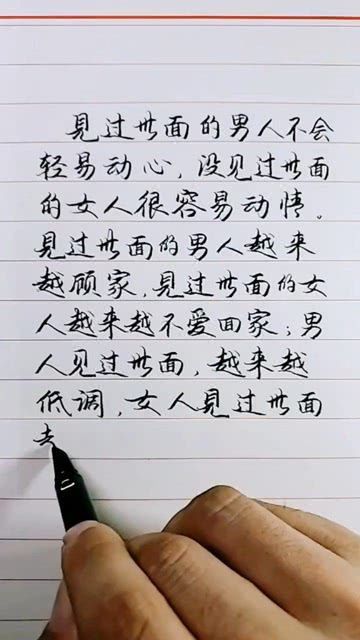 见过世面的男人不会
轻易动心，没见过世面
的女人很容易动情。
见过世面的男人越来
越顾家，见过世面的女
人越来越不爱回家；男
人见过世面，越来越
低调，女人见过世面